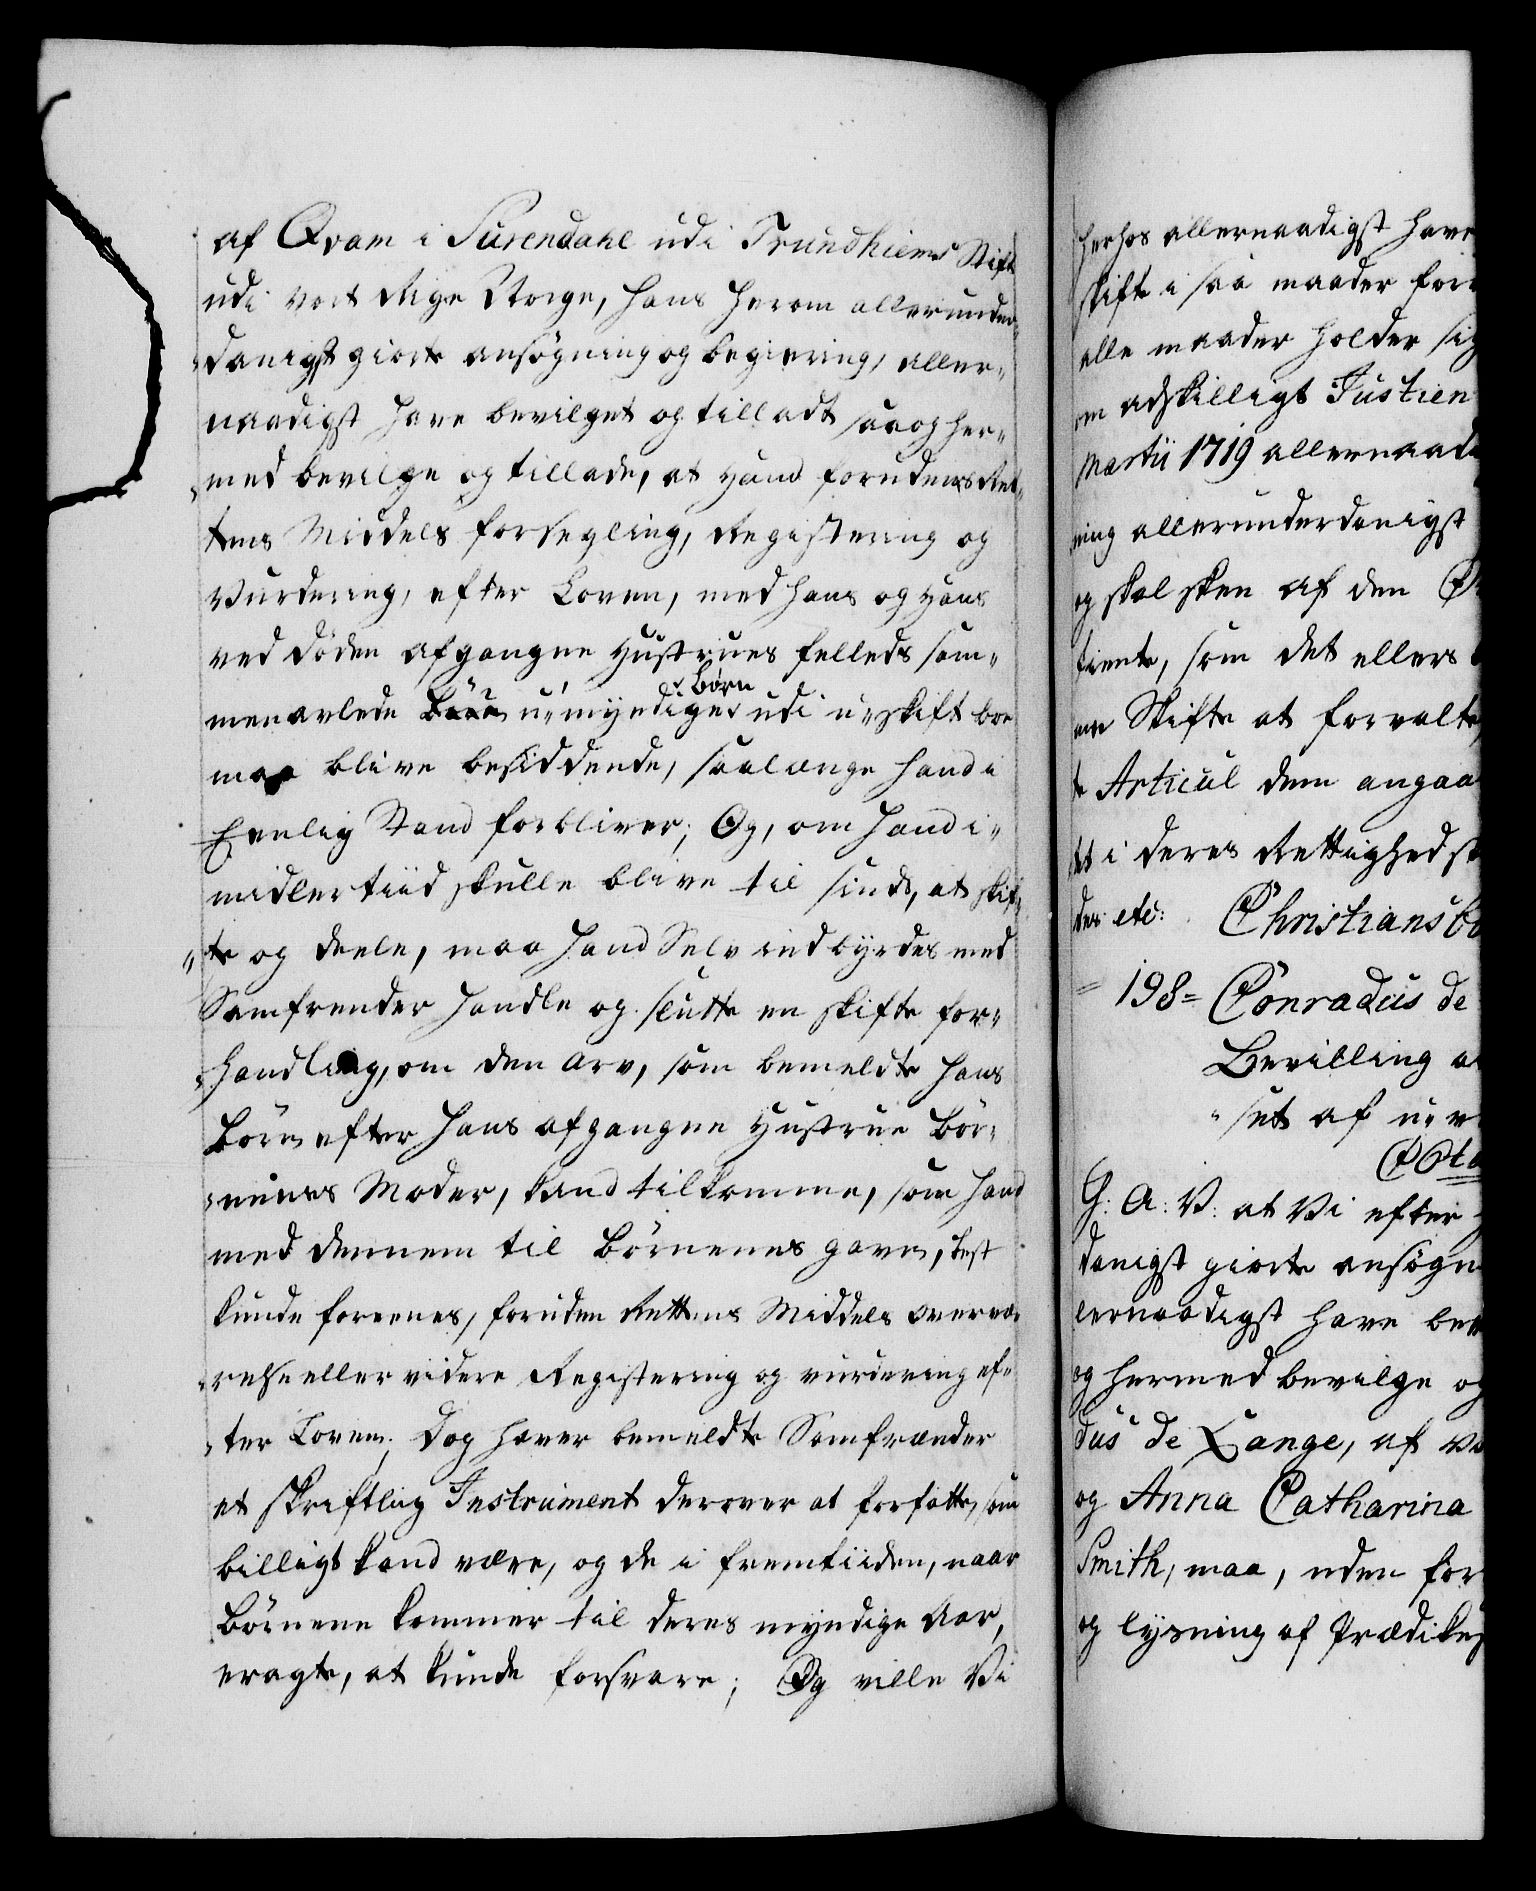 af Qvam i Surendahl udi Trundhiems Stift
udi vort Rige Norge, hans herom allerunder„
„danigst giorte ansøgning og begiering, aller„
naadigst have bevilget og tilladt saa og her„
„med bevilge og tillade, at hand foruden Ret„
tens Middels forsegling, Registering og
Vurdering, efter Loven, med hans og hans
ved døden afgangne Hustrues fælleds sam„
børn
menavlede u„myndige udi u„skift boe
maa blive besiddende, saalænge hand i
Eenlig Stand forbliver; Og, om hand i„
midlertiid skulle blive til sinds, at skif„
„te og deele, maa hand Selv indbyrdes med
Samfrender handle og slutte en skifte for„
„handling, om den arv, som bemeldte hans
børn efter hans afgangne Hustrue bør„
„nenes Moder, kand tilkomme, som hand
med dennem til børnenes gavn, best
kunde foreenes, foruden Rettens Middels overvæ„
„relse eller videre Registering og vurdering ef„
„ter Loven; Dog haver bemeldte Samfrænder
et skriftlig Instrument derover at forfatte, som
billigt kand være, og de i fremtiiden, naar
børnene kommer til deres myndige Aar,
eragte, at kunde forsvare; Og ville Vi
herhos allernaadigst have
skifte i saa maader for
alle maader holder sig
om adskilligt Justien
Martii 1719 allernaad
ning allerunderdanigst
og skal skee af den
tiente, som det ellers
me Skifte at forvalte
te Articul dem angaa
tet i deres Rettighed
des etc: Christiansbo
198= Conradus de
Bevilling a
„set af u„v
G: A: V: at Vi efter
danigst giorte ansøgn
lernaadigst have be
og hermed bevilge og
dus de Lange, af
og Anna Catharina
Smith, maa, uden for
og lysning af Prædike